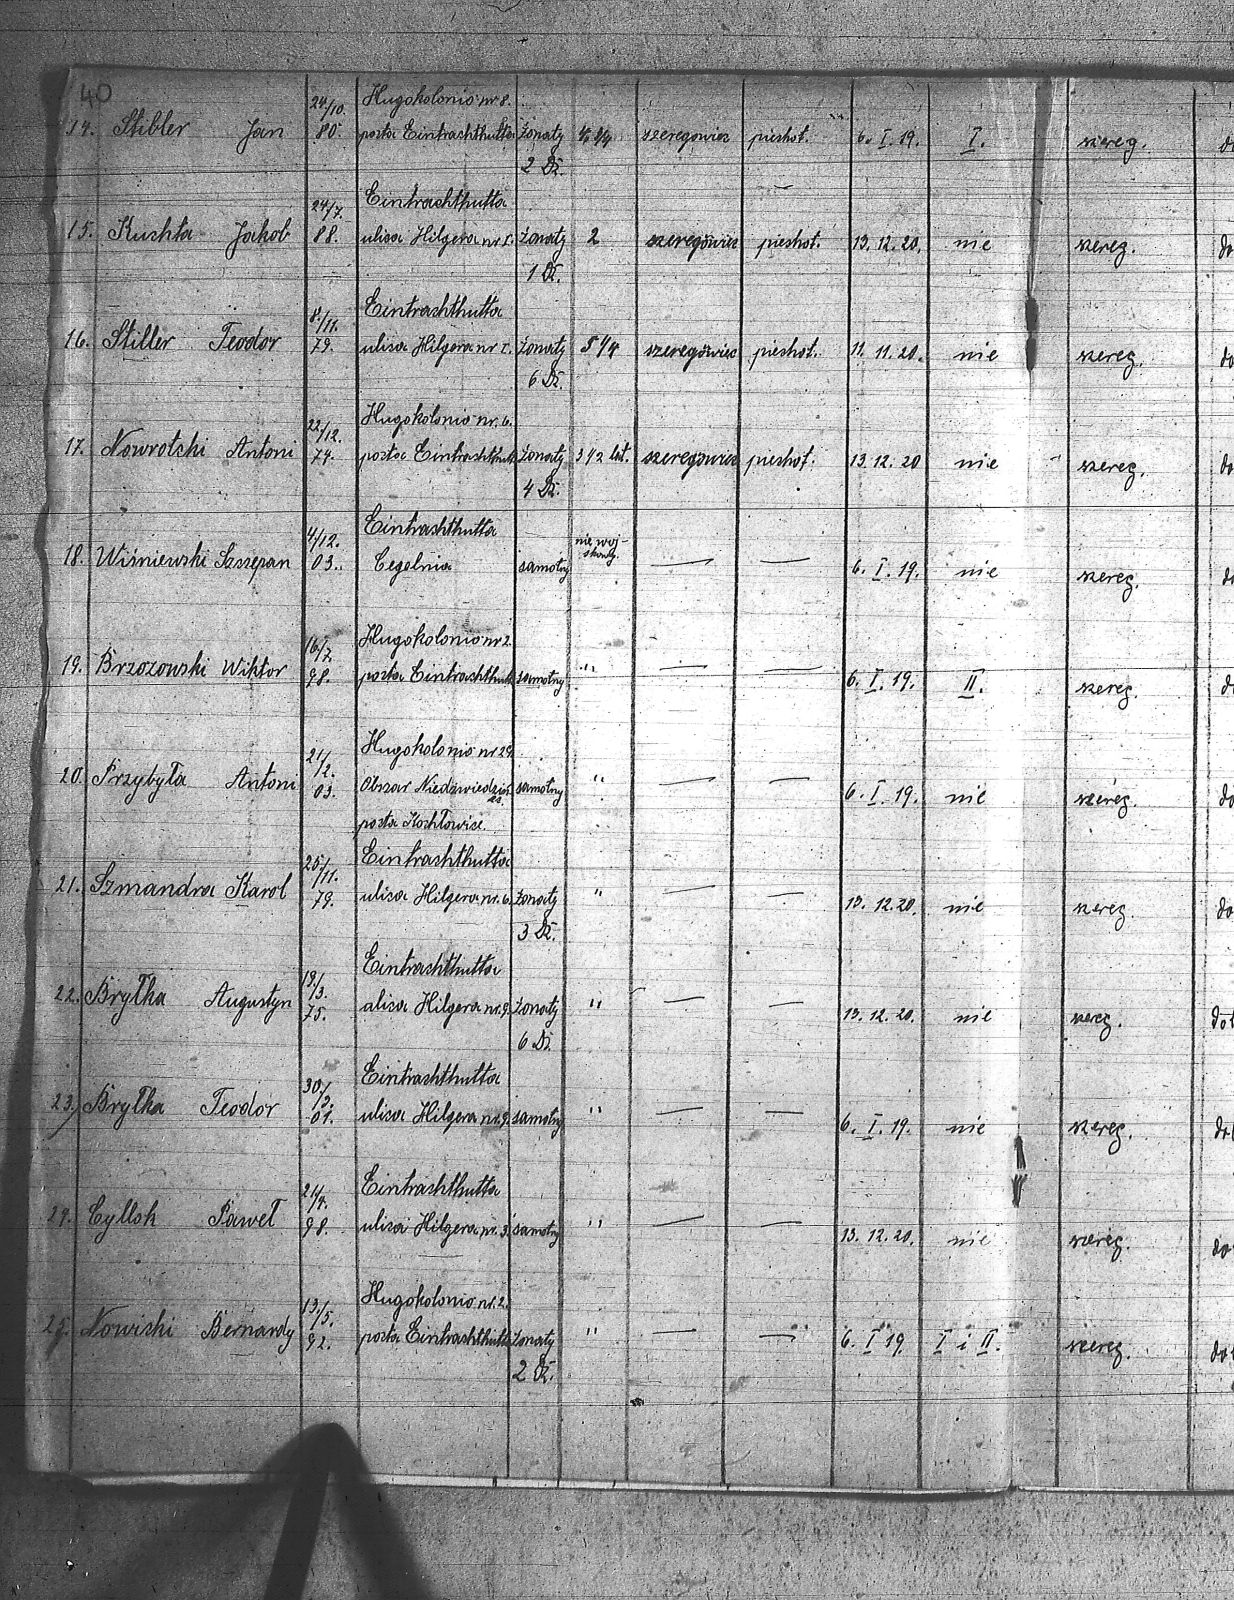 40
24/10. Hugokolonio nr 8.
14. Stibler Jan 80. posta Eintrachthutta Żonaty szeregowiec piechot. 6. I. 19. I. szereg.
2 Dz.
24/7. Eintrachthutta
15. Kuchta Jakob 88. ulica Hilgera nr 5. Żonaty 2 szeregowiec piechot. 13. 12. 20. nie szereg. do
1 Dz.
8/11. Eintrachthutta
16. Stiller Teodor 79. ulica Hilgera nr 5. Żonaty 5 1/4 szeregowiec piechot. 11. 11. 20. nie szereg. do
6 Dz.
22/12. Hugokolonio nr. 6.
17. Nowrotski Antoni 74. posta Eintrachthutt. Żonaty 3 1/2 lat. szeregowiec piechot. 13. 12. 20 nie szereg. do
4 Dz.
4/12. Eintrachthutta nie woj-
18. Wiśniewski Szczepan 03. Cegelnia samotny skowy. — — 6. I. 19. nie szereg. do
16/7. Hugokolonio nr 2.
19. Brzozowski Wiktor 98. posta Eintrachthutt. samotny " — — 6. I. 19. II. szereg. do
21/2. Hugokolonio nr 29.
20. Przybyła Antoni 03. Obszar Niedzwiedzi- samotny " — — 6. I. 19. nie szereg. do
posta Kochłowice.
25/11. Eintrachthutta
21. Szmandra Karol 79. ulica Hilgera nr. 6. Żonaty " — — 13. 12. 20. nie szereg. do
3 Dz.
18/3. Eintrachthutta
22. Bryłka Augustyn 75. ulica Hilgera nr. 9. Żonaty " — — 13. 12. 20. nie szereg. do
6 Dz.
30/3. Eintrachthutta
23. Bryłka Teodor 01. ulica Hilgera nr. 9. samotny " — — 6. I. 19. nie szereg. do
21/4. Eintrachthutta
24. Cylloh Paweł 98. ulica Hilgera nr. 3. samotny " — — 13. 12. 20. nie szereg. do
13/5. Hugokolonio nr. 2.
25. Nowiski Bernardy 92. posta Eintrachthutta Żonaty " — — 6. I 19. I i II. szereg. do
2 Dz.